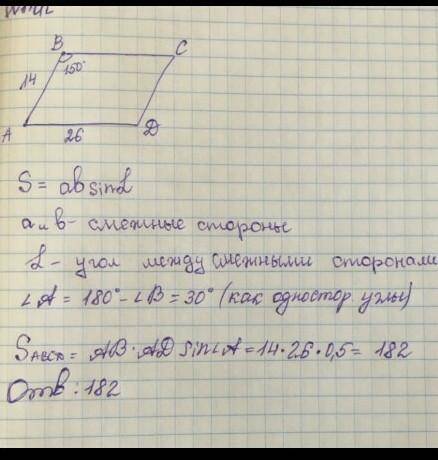 B
C
150°
14
A
26
D
S = ab sin L
a и в - смежные стороны
L - угол между смежными сторонами
∠A = 180° - ∠B = 30° (как одностор. углы)
S = AB · AD sin∠A = 14 · 26 · 0,5 = 182
Отв : 182